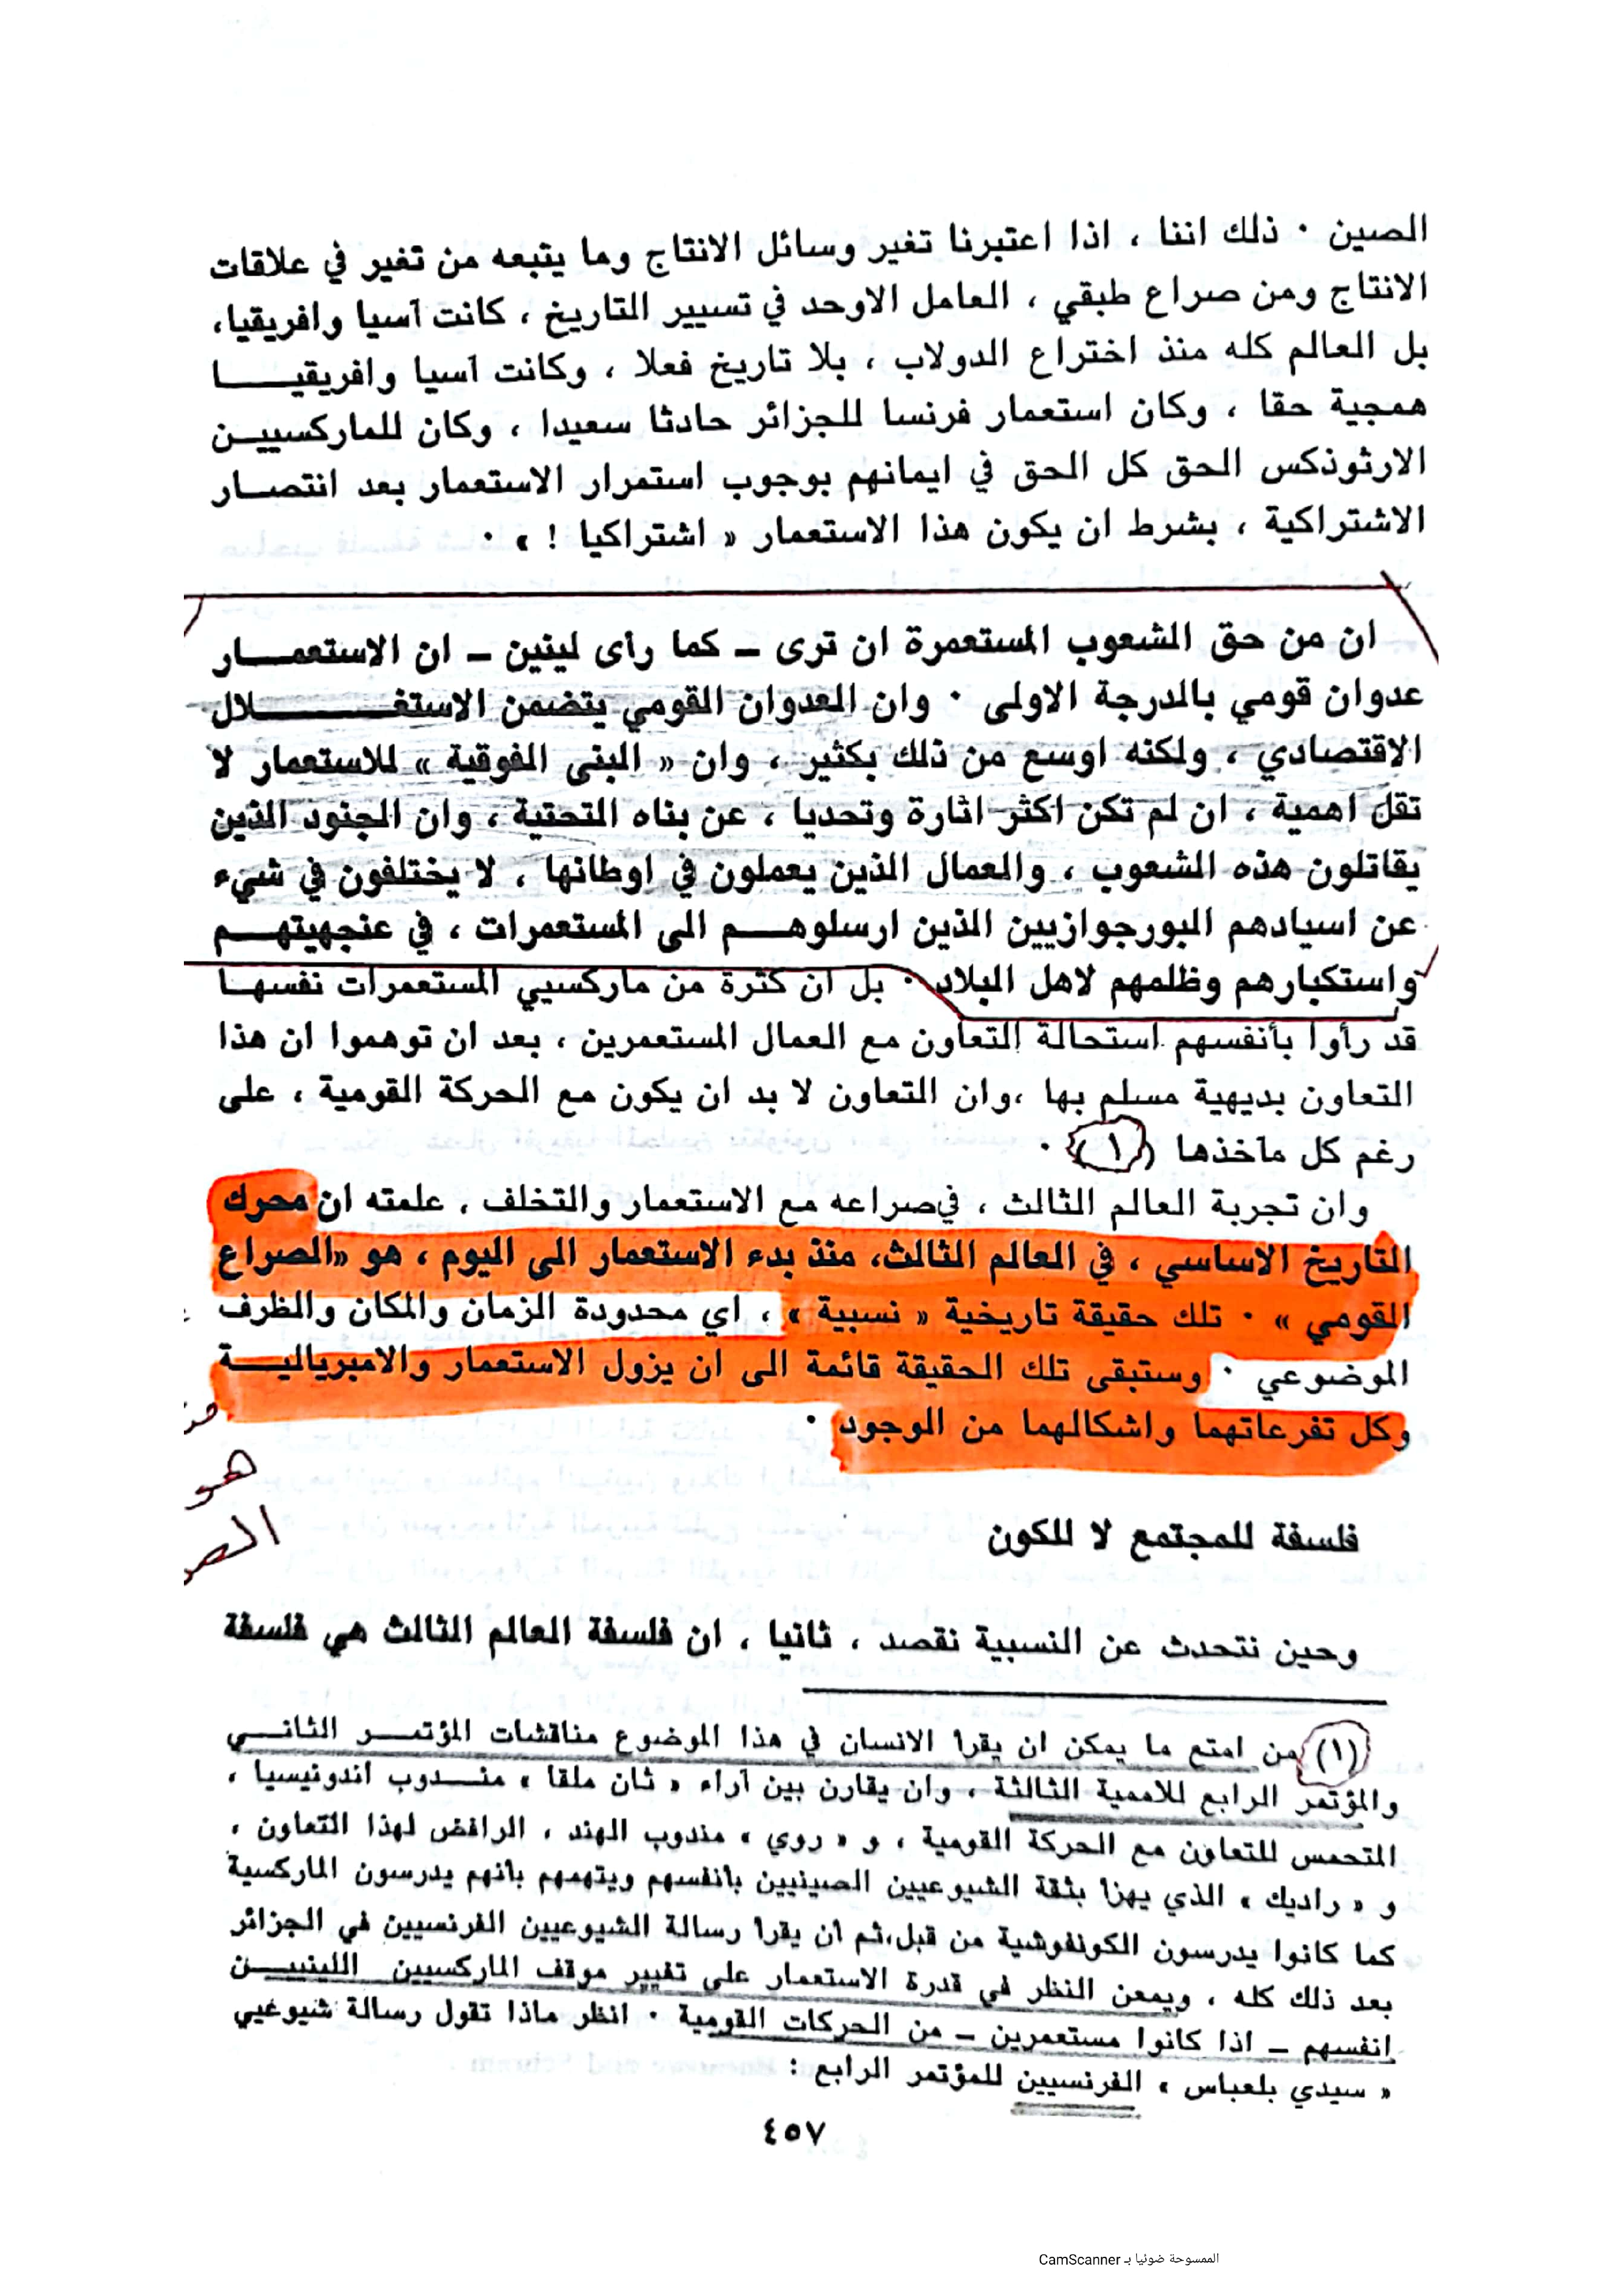 الصين ٠ ذلك اننا ، اذا اعتبرنا تغير وسائل الانتاج وما يتبعه من تغير في علاقات
الانتاج ومن صراع طبقي ، العامل الاوحد في تسيير التاريخ ، كانت آسيا وافريقيا،
بل العالم كله منذ اختراع الدولاب ، بلا تاريخ فعلا ، وكانت آسيا وافريقيــــا
همجية حقا ، وكان استعمار فرنسا للجزائر حادثا سعيدا ، وكان للماركسييــن
الارثوذكس الحق كل الحق في ايمانهم بوجوب استمرار الاستعمار بعد انتصــار
الاشتراكية ، بشرط ان يكون هذا الاستعمار « اشتراكيا ! » ٠
ان من حق الشعوب المستعمرة ان ترى ـ كما رأى لينين ـ ان الاستعمــار
عدوان قومي بالدرجة الاولى ٠ وان العدوان القومي يتضمن الاستغــــــلال
الاقتصادي ، ولكنه اوسع من ذلك بكثير ، وان « البنى الفوقية » للاستعمار لا
تقل اهمية ، ان لم تكن اكثر اثارة وتحديا ، عن بناه التحتية ، وان الجنود الذين
يقاتلون هذه الشعوب ، والعمال الذين يعملون في اوطانها ، لا يختلفون في شيء
عن اسيادهم البورجوازيين الذين ارسلوهــم الى المستعمرات ، في عنجهيتهــم
واستكبارهم وظلمهم لاهل البلاد ٠ بل ان كثرة من ماركسيي المستعمرات نفسهــا
قد رأوا بأنفسهم استحالة التعاون مع العمال المستعمرين ، بعد ان توهموا ان هذا
التعاون بديهية مسلم بها ،وان التعاون لا بد ان يكون مع الحركة القومية ، على
رغم كل مآخذها (١) ٠
وان تجربة العالم الثالث ، في صراعه مع الاستعمار والتخلف ، علمته ان محرك
التاريخ الاساسي ، في العالم الثالث، منذ بدء الاستعمار الى اليوم ، هو «الصراع
القومي » ٠ تلك حقيقة تاريخية « نسبية » ، اي محدودة الزمان والمكان والظرف
الموضوعي ٠ وستبقى تلك الحقيقة قائمة الى ان يزول الاستعمار والامبرياليــة
وكل تفرعاتهما واشكالهما من الوجود ٠
هو
فلسفة للمجتمع لا للكون
وحين نتحدث عن النسبية نقصد ، ثانيا ، ان فلسفة العالم الثالث هي فلسفة
(١) من امتع ما يمكن ان يقرا الانسان في هذا الموضوع مناقشات المؤتمــر الثانــي
والمؤتمر الرابع للاممية الثالثة ، وان يقارن بين آراء « ثان ملقا » منــدوب اندونيسيا ،
المتحمس للتعاون مع الحركة القومية ، و « روي » مندوب الهند ، الرافض لهذا التعاون ،
و « راديك » الذي يهزا بثقة الشيوعيين الصينيين بانفسهم ويتهمهم بانهم يدرسون الماركسية
كما كانوا يدرسون الكونفوشية من قبل،ثم ان يقرا رسالة الشيوعيين الفرنسيين في الجزائر
بعد ذلك كله ، ويمعن النظر في قدرة الاستعمار على تغيير موقف الماركسيين اللينييــن
انفسهم ـ اذا كانوا مستعمرين ـ من الحركات القومية ٠ انظر ماذا تقول رسالة شيوعيي
« سيدي بلعباس » الفرنسيين للمؤتمر الرابع :
٤٥٧
الممسوحة ضوئيا بـ CamScanner